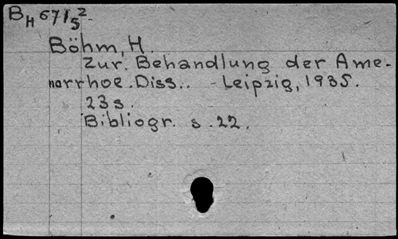 BH 671/5²
Böhm, H.
Zur Behandlung der Ame-
norrhoe. Diss.. - Leipzig, 1935.
23 s.
Bibliogr. s. 22.